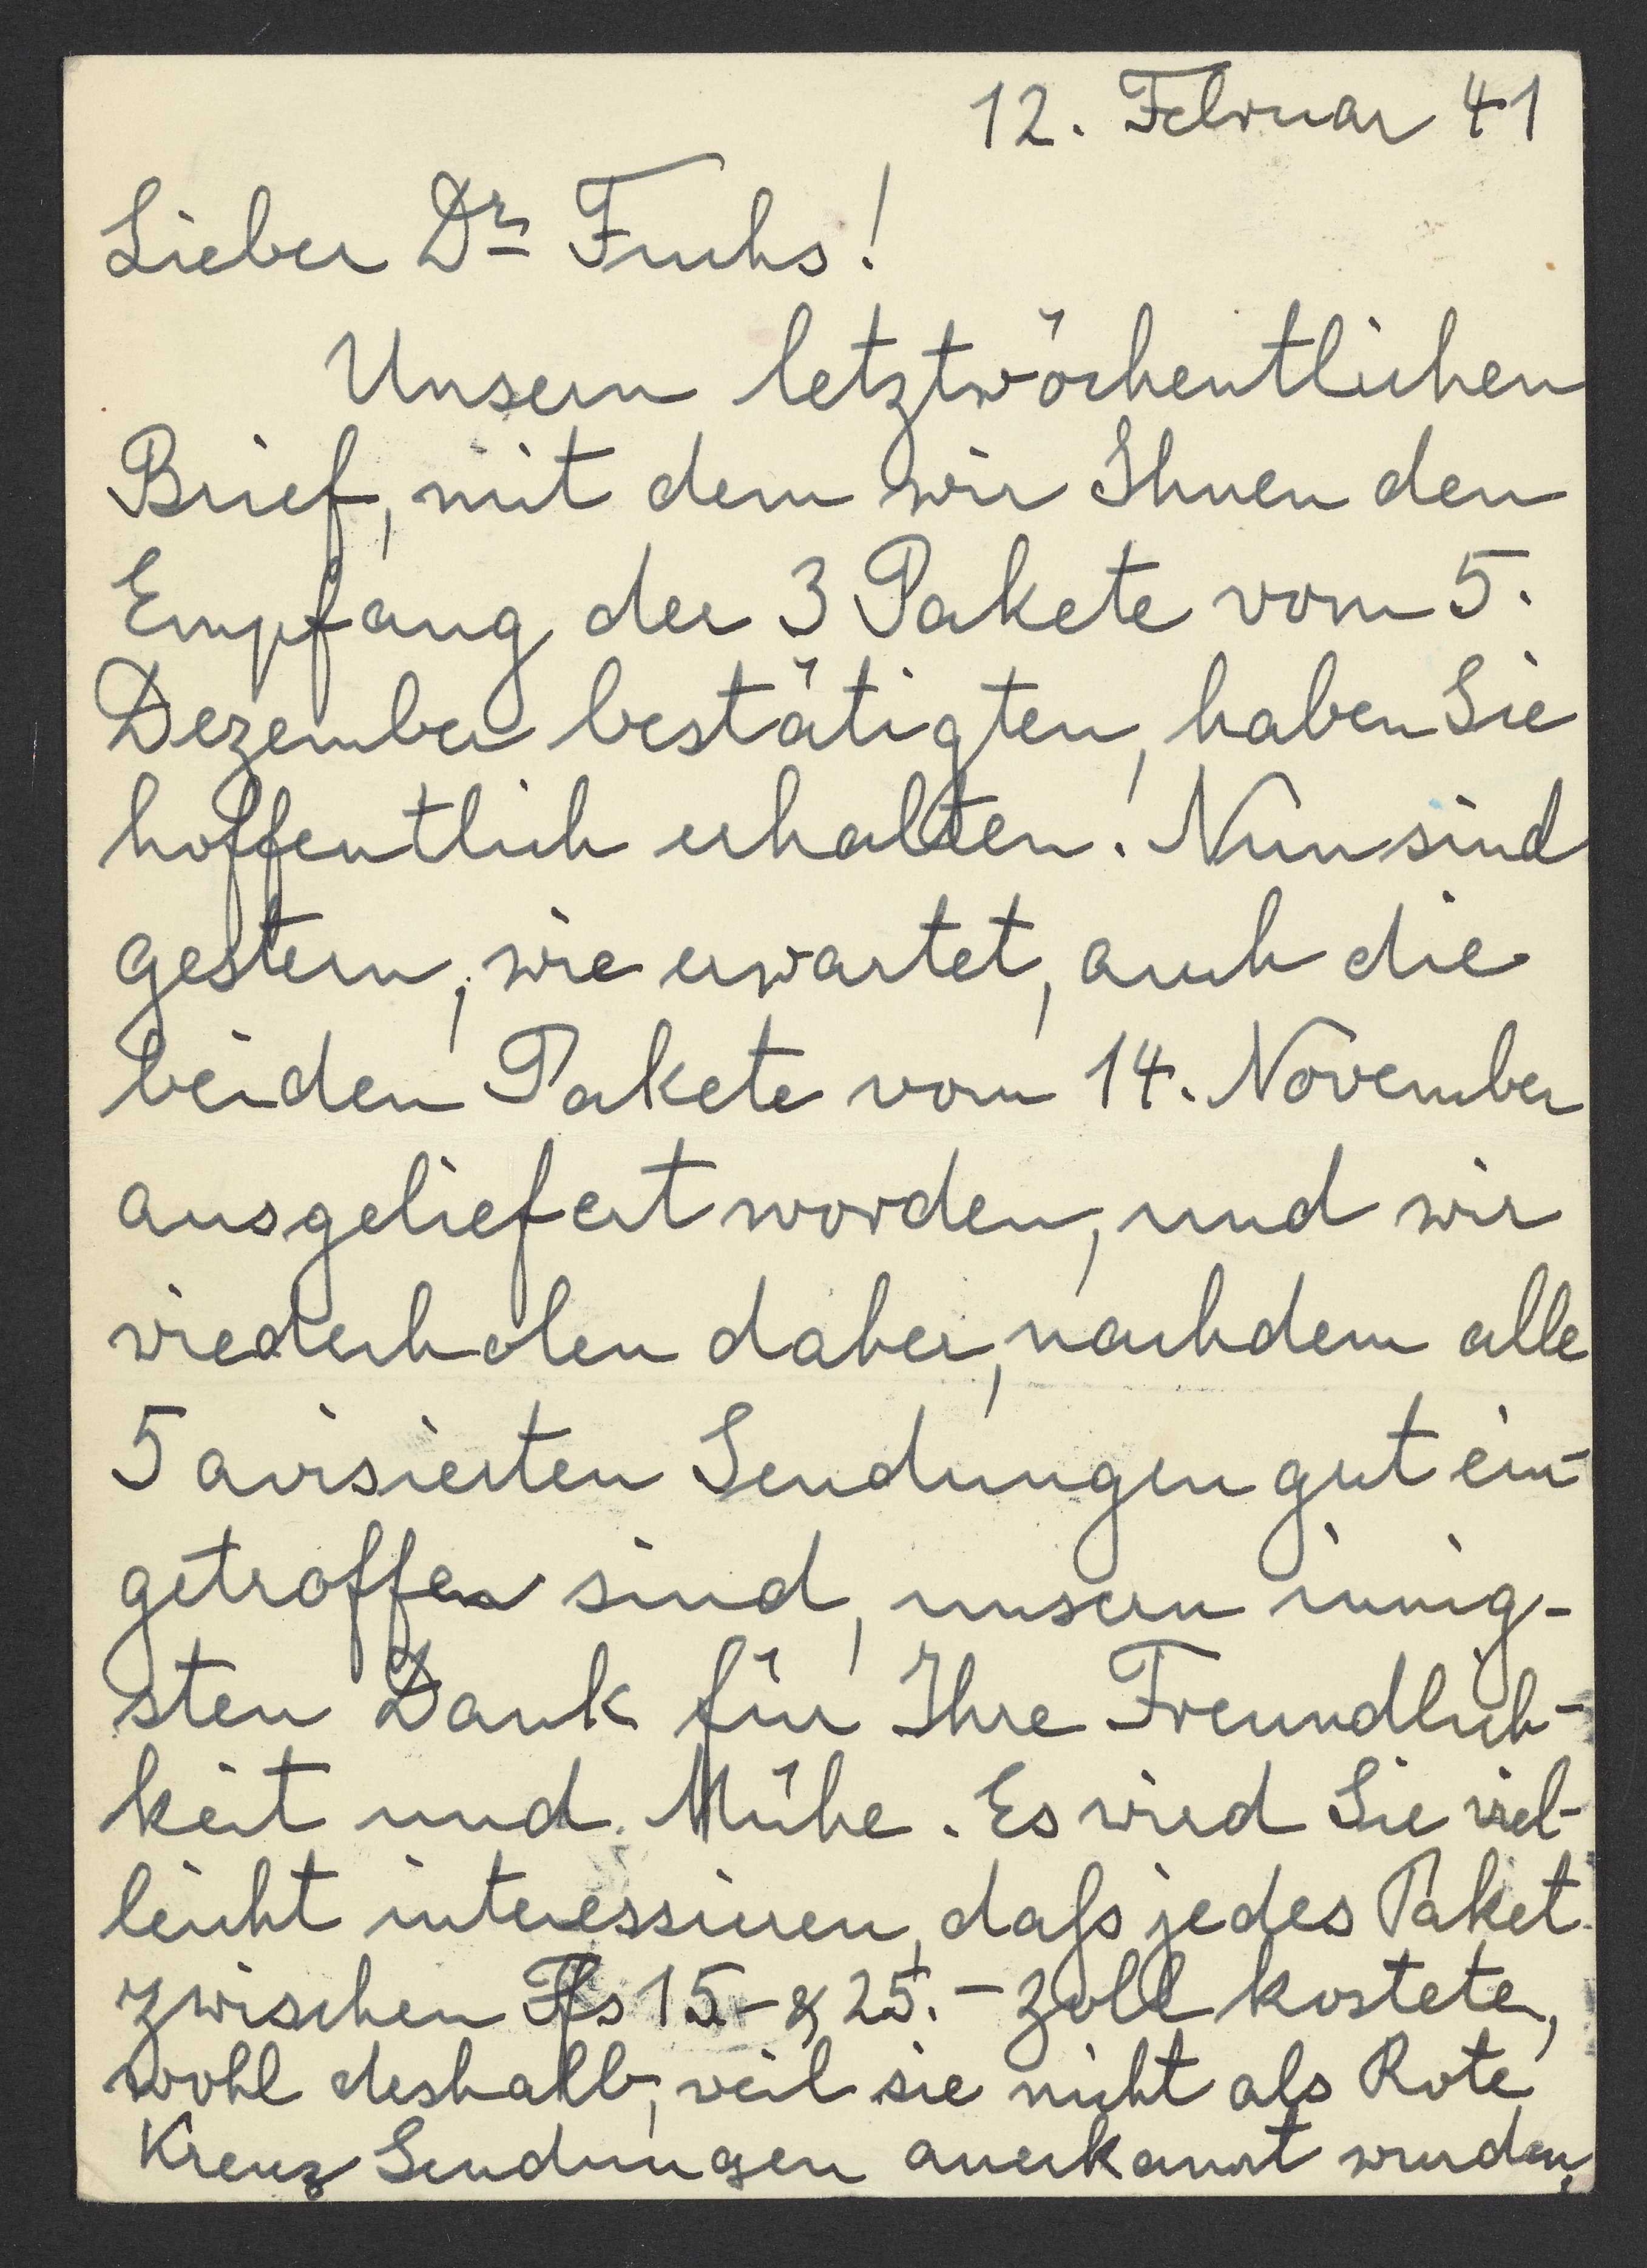 12. Februar 41
Lieber Dr Fuchs!
Unsern letztwöchentlichen
Brief, mit dem wir Ihnen den
Empfang der 3 Pakete vom 5.
Dezember bestätigten, haben Sie
hoffentlich erhalten. Nun sind
gestern, wie erwartet, auch die
beiden Pakete vom 14. November
ausgeliefert worden, und wir
wiederholen daher, nachdem alle
5 avisierten Sendungen gut ein-
getroffen sind, unsern innig-
sten Dank für Ihre Freundlich-
keit und Mühe. Es wird Sie viel-
leicht interessieren, daſs jedes Paket
zwischen Ffs 15.- & 25.- Zoll kostete,
wohl deshalb, weil sie nicht als Rote
Kreuz Sendungen anerkannt wurden,